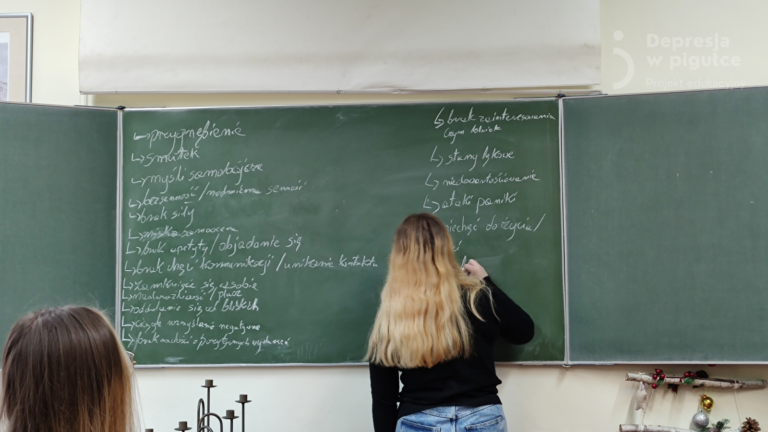 ↳ przygnębienie
↳ smutek
↳ myśli samobójcze
↳ bezsenność / nadmierna senność
↳ brak siły
↳ brak apetytu / objadanie się
↳ brak chęci komunikacji / unikanie kontaktu
↳ zamknięcie się w sobie
↳ płacz
↳ oddalenie się od bliskich
↳ ciągłe negatywne
↳ brak
↳ brak zainteresowania
czym kolwiek
↳ stany lękowe
↳ niedowartościowanie
↳ ataki paniki
niechęć do życia /
Depresja
w pigułce